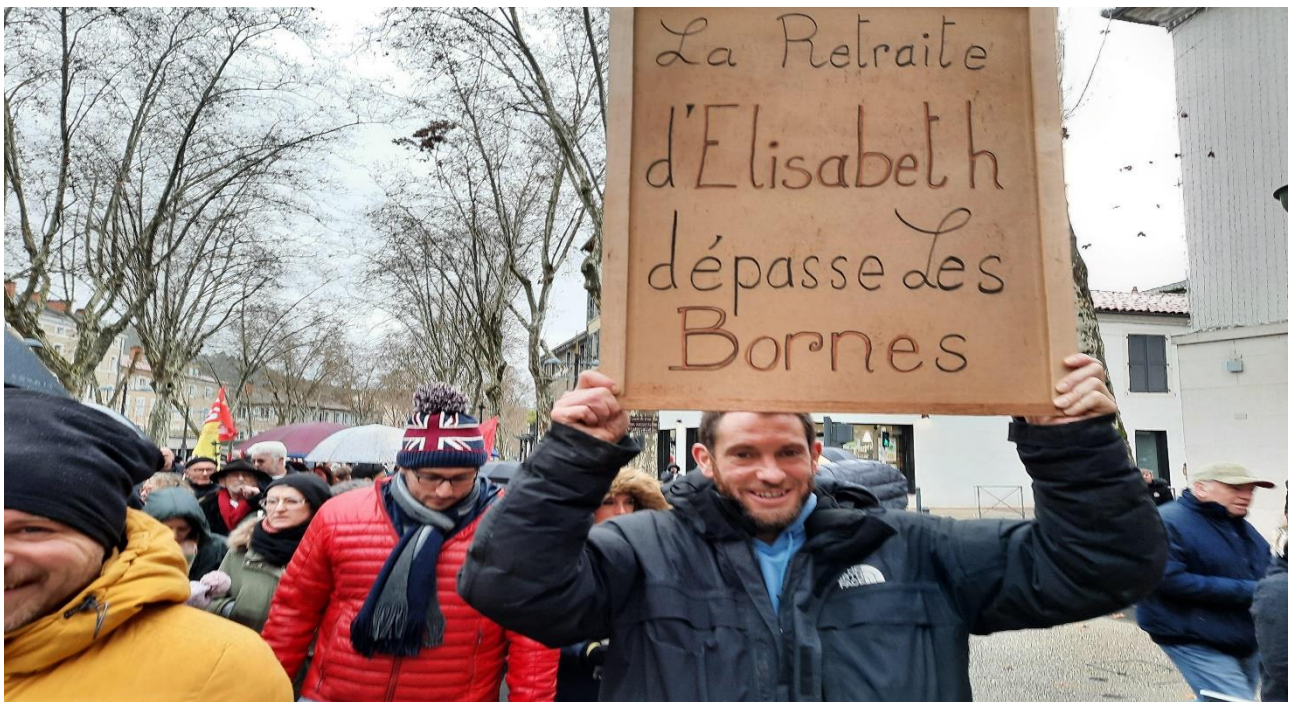 La Retraite
d'Elisabeth
dépasse Les
Bornes
THE
NORTH
FACE